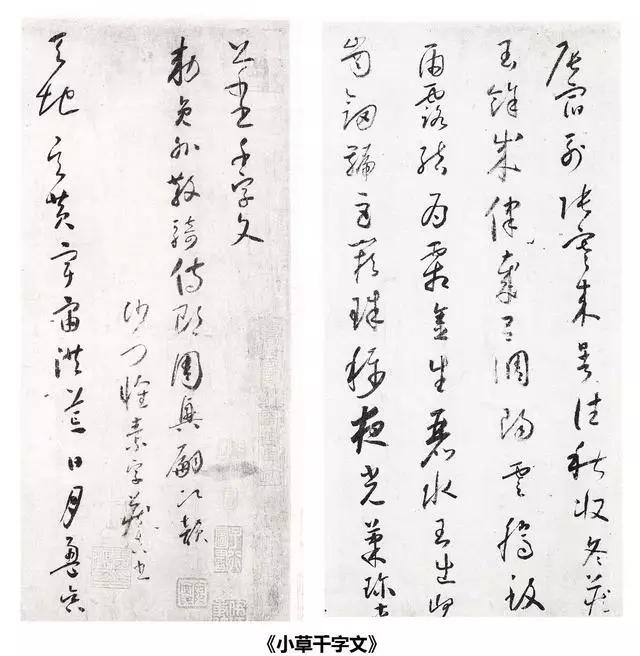 千字文
勅員外散騎侍郎周興嗣次韻
沙門懷素字藏真書
天地玄黃宇宙洪荒日月盈昃
辰宿列張寒來暑往秋收冬藏
閏餘成律歲呂調陽雲騰致
雨露結為霜金生麗水玉出崑
崗劍號巨闕珠稱夜光菓珍李
《小草千字文》